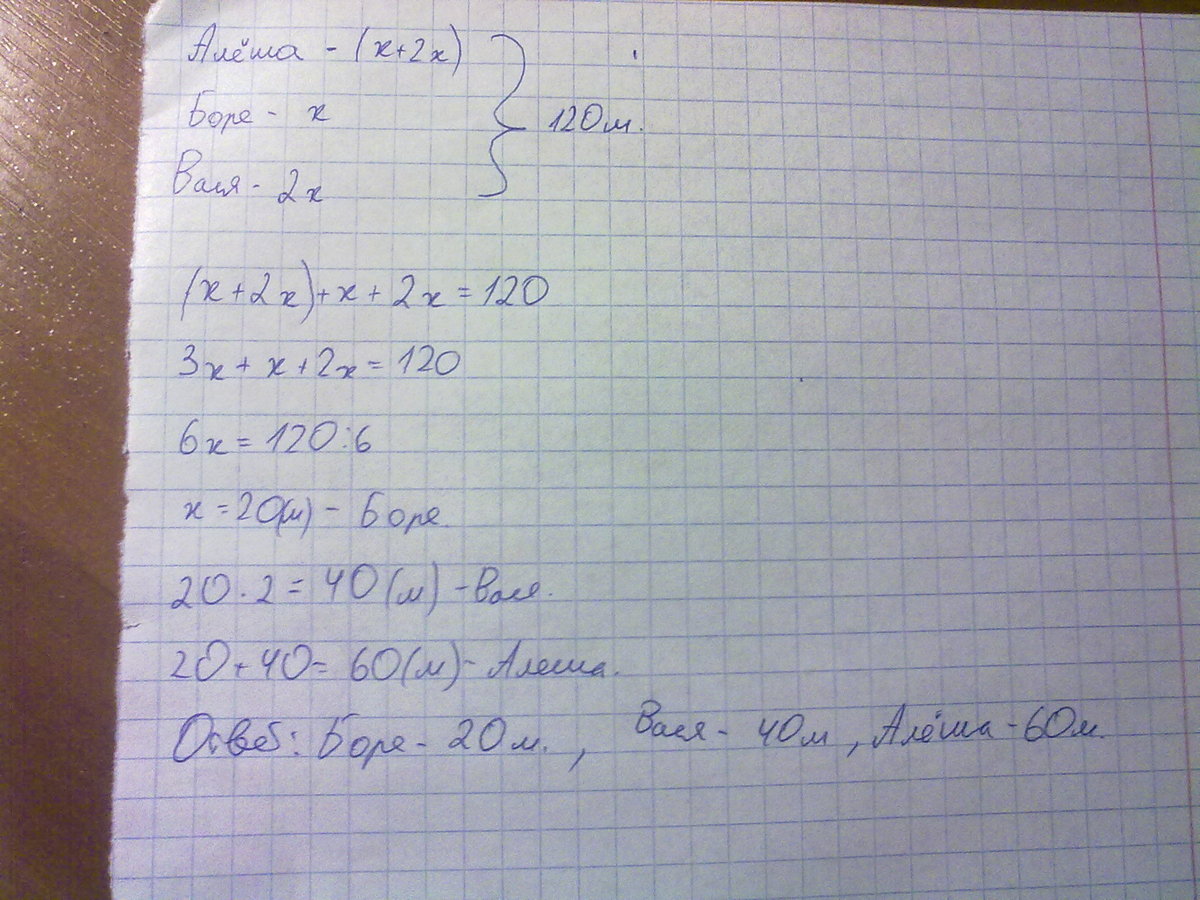 Алёша - (x+2x)
Боре - x
Вася - 2x
120м.
(x+2x)+x+2x=120
3x+x+2x=120
6x=120:6
x=20(м) - Боре.
20·2=40(м) - Вася.
20+40=60(м) - Алеша.
Ответ: Боре - 20м., Вася - 40м, Алёша - 60м.